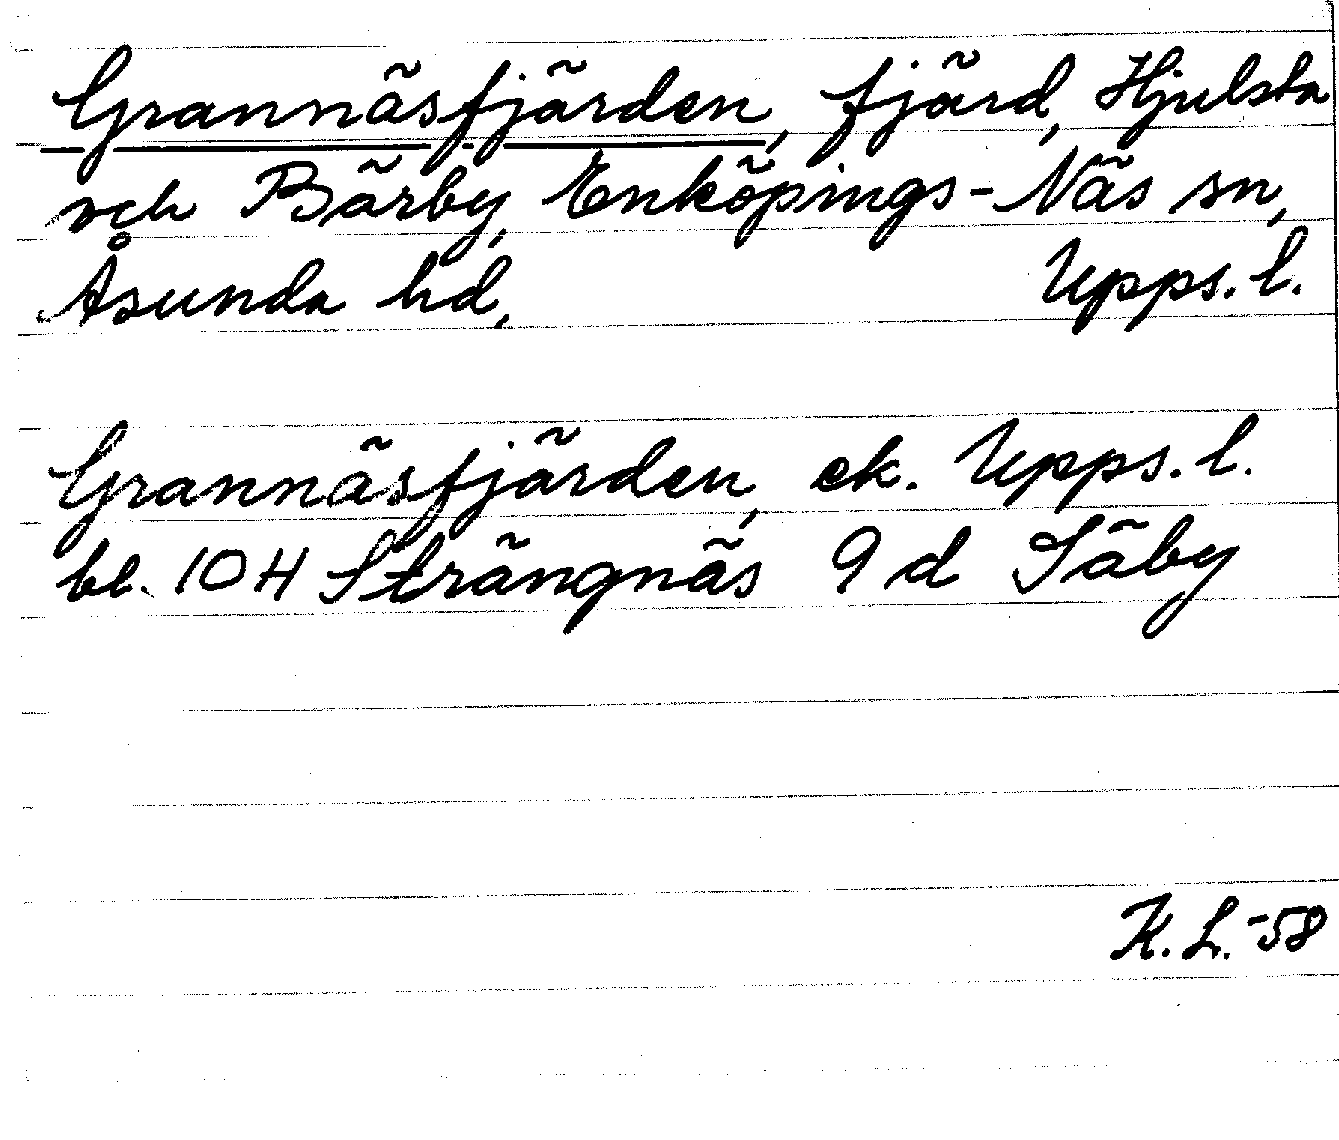 Grannäsfjärden, fjärd, Hjulsta
och Bärby, Enköpings-Näs sn,
Åsunda hd, Upps. l.
Grannäsfjärden, ek. Upps. l.
bl. 10H Strängnäs 9 d Säby
K. L. -58